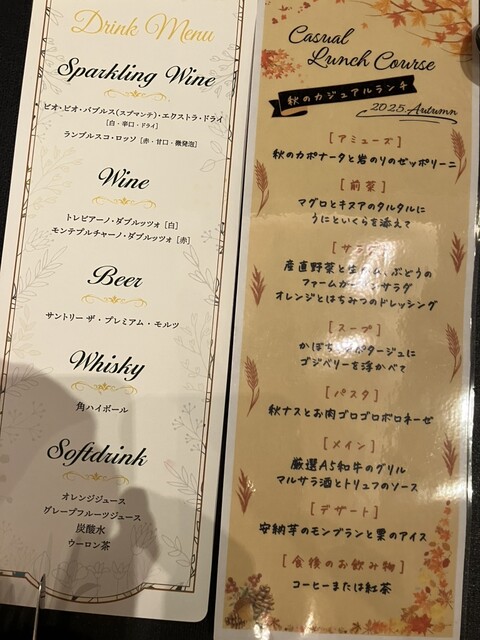 Drink Menu
Sparkling Wine
ビオ・ビオ・バブルス(スプマンテ)・エクストラ・ドライ
[白・辛口・ドライ]
ランブルスコ・ロッソ [赤・甘口・微発泡]
Wine
トレビアーノ・ダブルッツォ [白]
モンテプルチャーノ・ダブルッツォ [赤]
Beer
サントリー ザ・プレミアム・モルツ
Whisky
角ハイボール
Softdrink
オレンジジュース
グレープフルーツジュース
炭酸水
ウーロン茶
Casual
Lunch Course
秋のカジュアルランチ
2025.Autumn
[アミューズ]
秋のカポナータと岩のりのゼッポリーニ
[前菜]
マグロとキヌアのタルタルに
うにといくらを添えて
[サラダ]
産直野菜と生ハム、ぶどうの
ファームガーデンサラダ
オレンジとはちみつのドレッシング
[スープ]
かぼちゃのポタージュに
ゴジベリーを浮かべて
[パスタ]
秋ナスとお肉ゴロゴロボロネーゼ
[メイン]
厳選A5和牛のグリル
マルサラ酒とトリュフのソース
[デザート]
安納芋のモンブランと栗のアイス
[食後のお飲み物]
コーヒーまたは紅茶